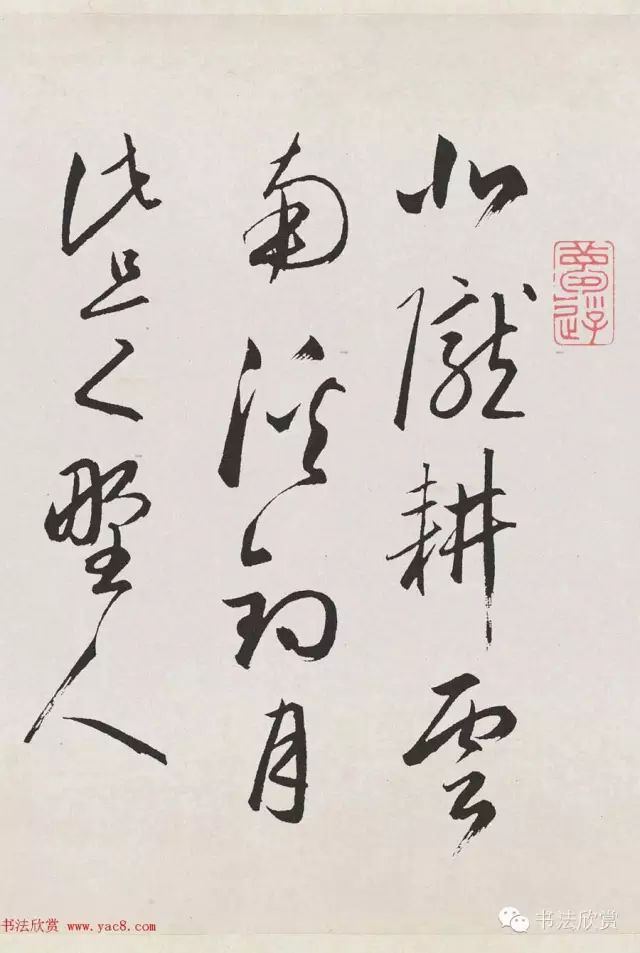 北隴耕雲
南溪釣月
此是野人
书法欣赏 www.yac8.com
书法欣赏